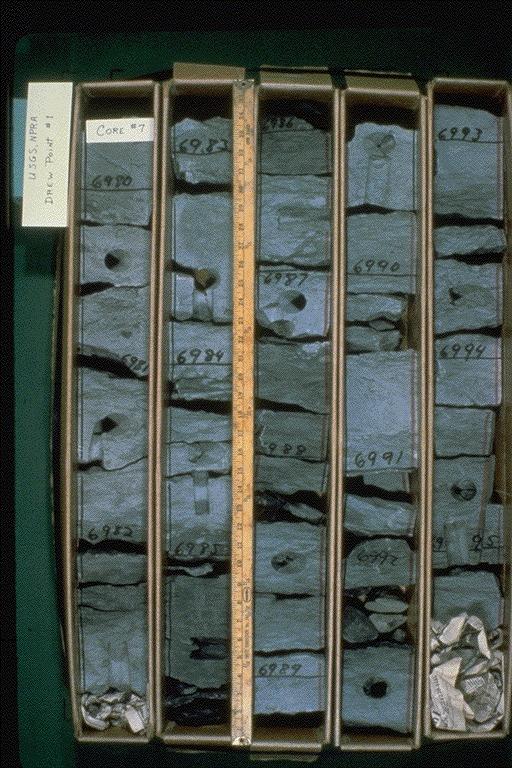 USGS NPRA
DREW POINT #1
CORE #7
6980
6981
6982
6983
6984
6985
6986
6987
6988
6989
6990
6991
6992
6993
6994
95